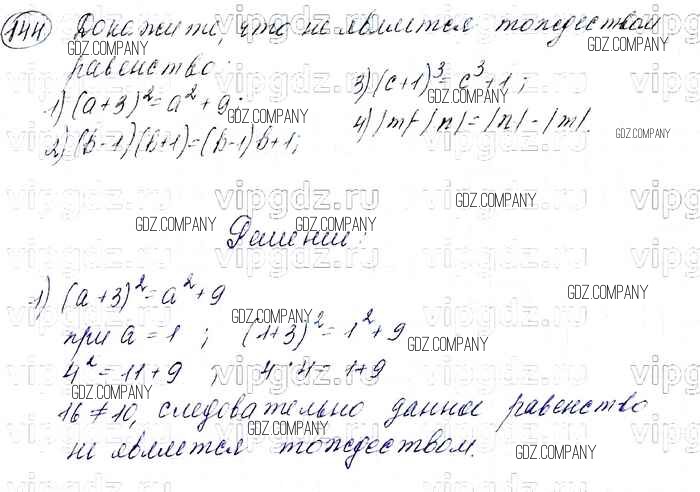 144 Докажите, что не является тождеством
равенство:
1) (a+3)² = a² + 9;
2) (b-1)(b+1) = (b-1)b+1;
3) (c+1)³ = c³+1;
4) |m|-|n| = |n|-|m|.
Решение:
1) (a+3)² = a²+9
при a = 1 ; (1+3)² = 1²+9
4² = 11+9 ; 4·4 = 1+9
16 ≠ 10, следовательно данное равенство
не является тождеством.
GDZ.COMPANY
vipgdz.ru